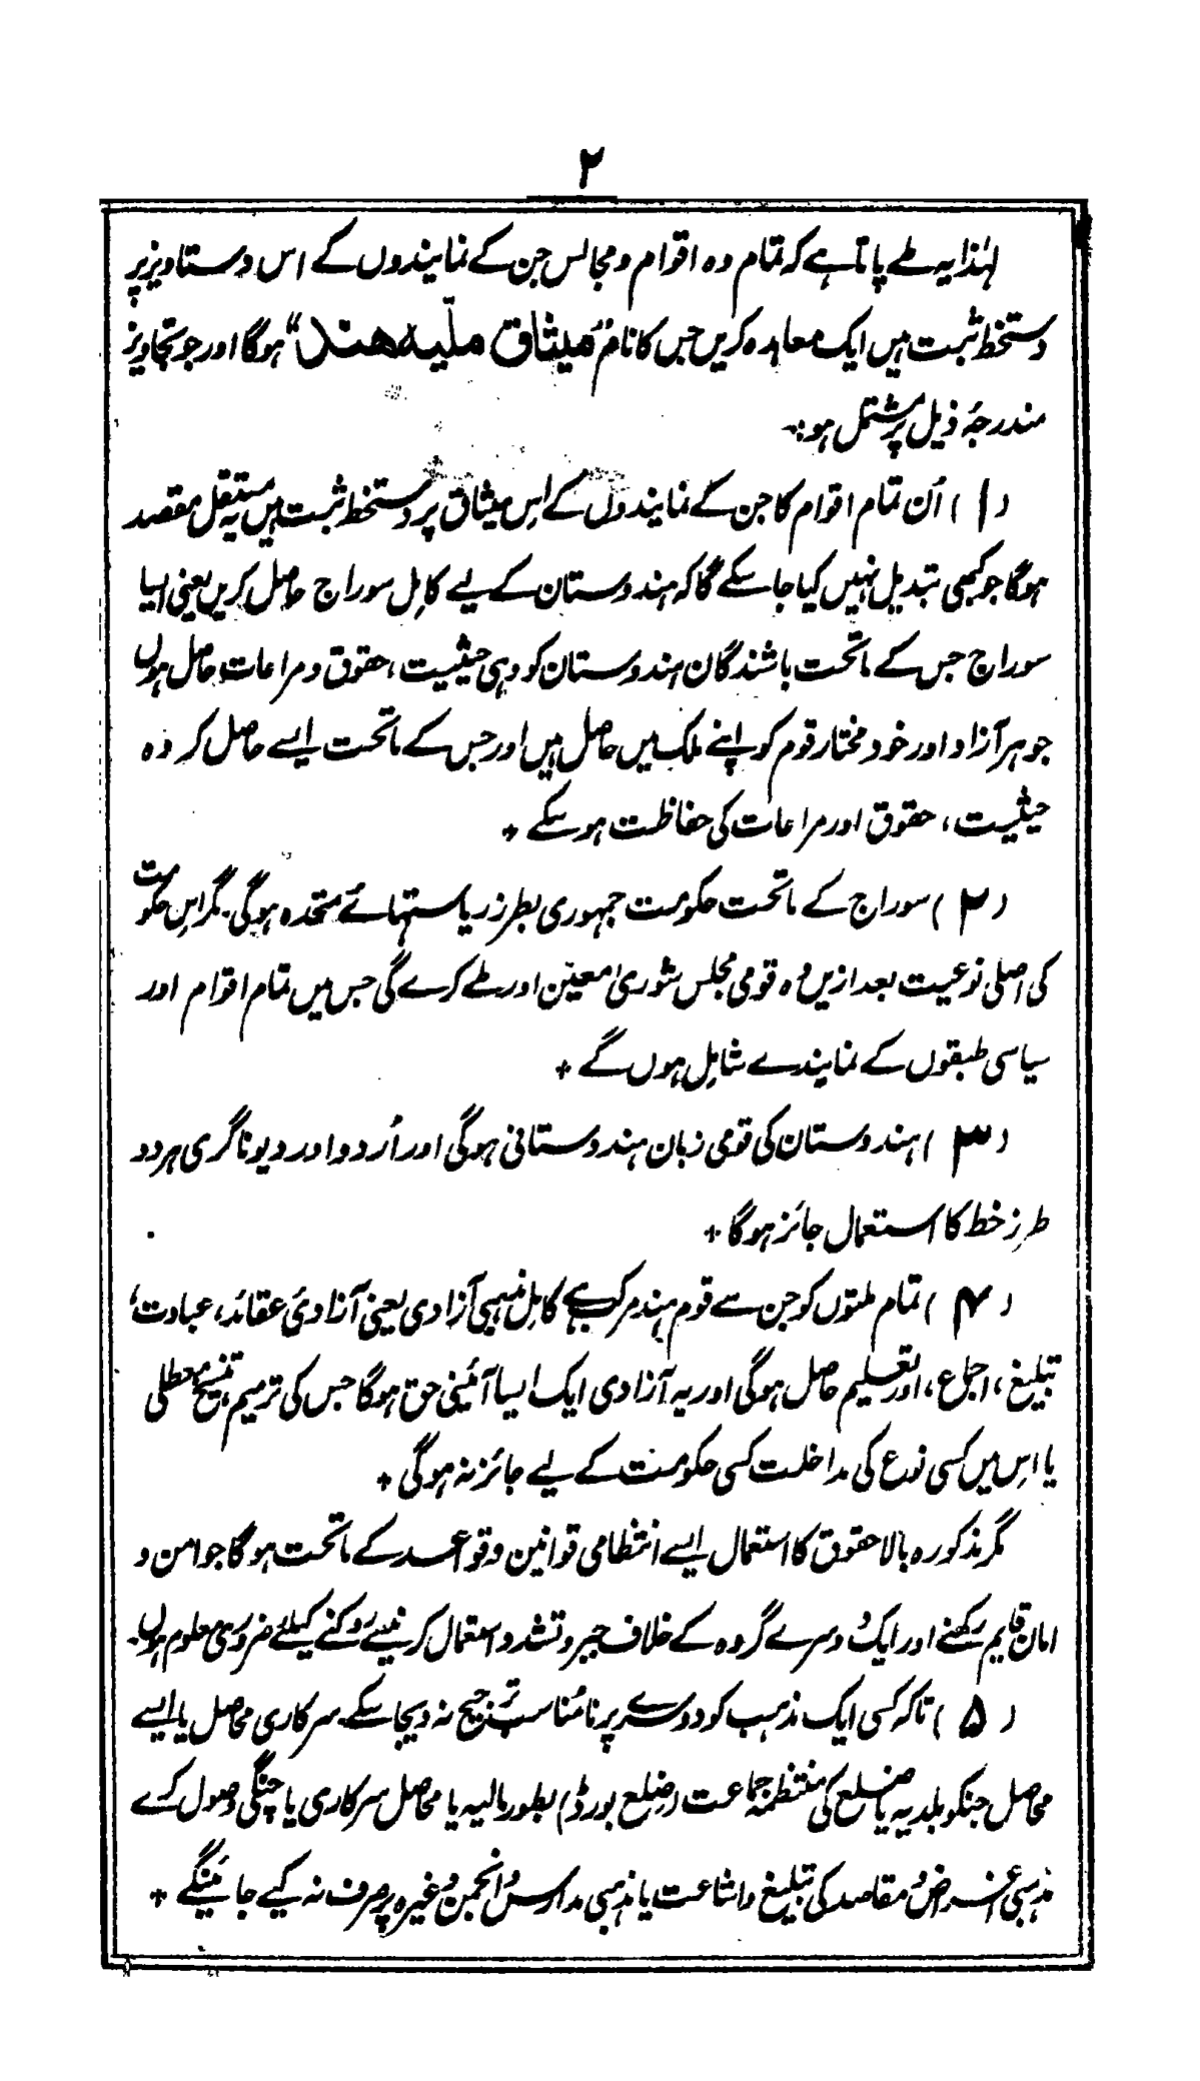 ۲
لہٰذا یہ طے پاتا ہے کہ تمام وہ اقوام و مجالس جن کے نمایندوں کے اس دستاویز پر
دستخط ثبت ہیں ایک معاہدہ کریں جس کا نام "میثاق ملّیہ ھند" ہوگا اور جو تجاویز
مندرجۂ ذیل پر مشتمل ہو:۔
(۱) اُن تمام اقوام کا جن کے نمایندوں کے اِس میثاق پر دستخط ثبت ہیں یہ مستقل مقصد
ہوگا جو کبھی تبدیل نہیں کیا جا سکے گا کہ ہندوستان کے لیے کامِل سوراج حاصل کریں یعنی ایسا
سوراج جس کے ماتحت باشندگان ہندوستان کو وہی حیثیت، حقوق و مراعات حاصل ہوں
جو ہر آزاد اور خود مختار قوم کو اپنے ملک میں حاصل ہیں اور جس کے ماتحت ایسے حاصل کردہ
حیثیت، حقوق اور مراعات کی حفاظت ہو سکے +
(۲) سوراج کے ماتحت حکومت جمہوری بطرز ریاستہائے متحدہ ہوگی۔ مگر اِس حکومت
کی اصلی نوعیت بعد ازیں وہ قومی مجلس شوریٰ معیّن اور طے کرے گی جس میں تمام اقوام اور
سیاسی طبقوں کے نمایندے شامِل ہوں گے +
(۳) ہندوستان کی قومی زبان ہندوستانی ہوگی اور اُردو اور دیوناگری ہر دو
طرزِ خط کا استعمال جائز ہوگا +
(۴) تمام ملتوں کو جن سے قوم ہند مرکب ہے کامِل مذہبی آزادی یعنی آزادیٔ عقائد، عبادت،
تبلیغ، اجماع، اور تعلیم حاصل ہوگی اور یہ آزادی ایک ایسا آئینی حق ہوگا جس کی ترمیم تنسیخ معطلی
یا اِس میں کسی نوع کی مداخلت کسی حکومت کے لیے جائز نہ ہوگی +
مگر مذکورہ بالا حقوق کا استعمال ایسے انتظامی قوانین و قواعد کے ماتحت ہوگا جو امن و
امان قایم رکھنے اور ایک دوسرے گروہ کے خلاف جبر و تشدد استعمال کرنیسے روکنے کیلئے ضروری معلوم ہوں۔
(۵) تاکہ کسی ایک مذہب کو دوسرے پر نامُناسب ترجیح نہ دیجا سکے۔ سرکاری محاصل یا ایسے
محاصل جنکو بلدیہ یا ضلع کی منتظمہ جماعت (ضلع بورڈ) بطور مالیہ یا محاصل سرکاری یا چنگی وصول کرے
مذہبی اغراض و مقاصد کی تبلیغ و اشاعت یا مذہبی مدارس و انجمن وغیرہ پر صرف نہ کیے جائینگے +